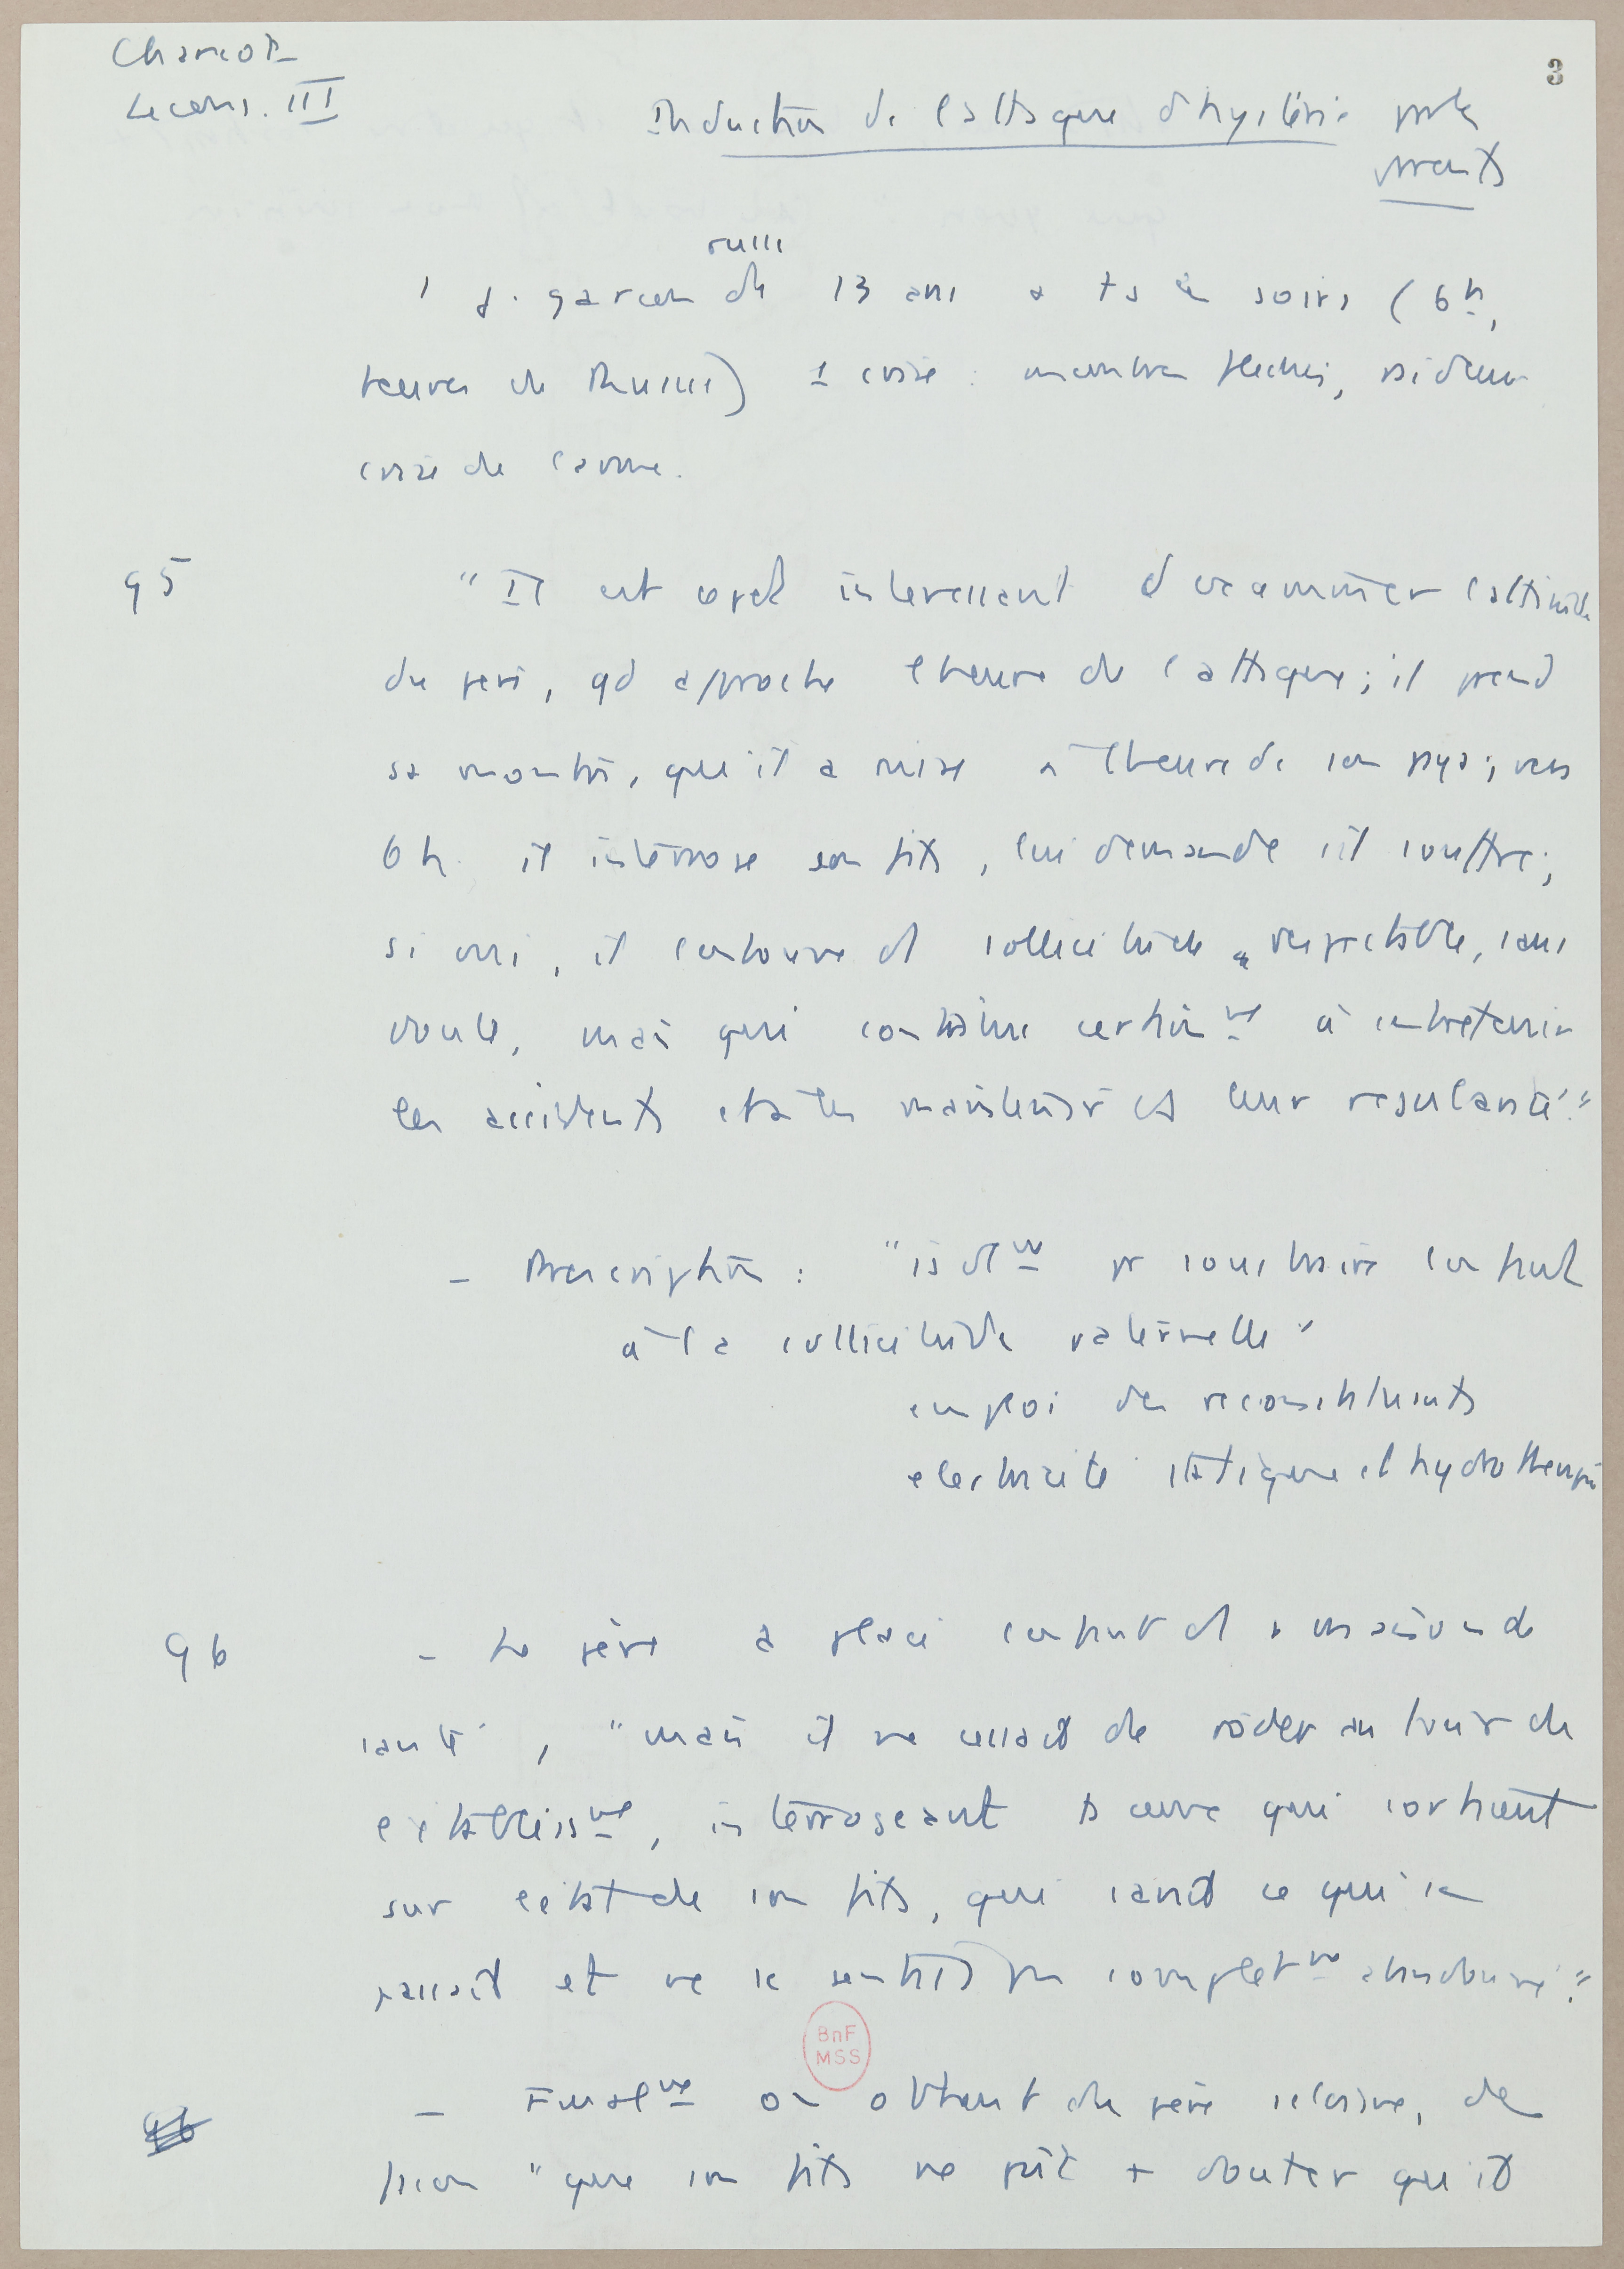 Charcot
Leçons. III
3
Induction de l'attaque d'hystérie par les
parents
russe
1 j. garçon de 13 ans a ts les soirs (6h,
heures de Russie) 1 crise : membres fléchis, rideur
crise de larme.
95
"Il est operé intéressant d'examiner l'attitude
du père, qd approche l'heure de l'attaque; il prend
sa montre, qu'il a mise à l'heure de son pays; vers
6h il interroge son fils, lui demande s'il souffre;
si oui, il l'entoure d' sollicitude " respectable, sans
doute, mais qui contribue certainᵐᵗ à entretenir
les accidents et à les maintenir ds leur régularité".
- Prescription : "isolᵐᵗ pr soustraire l'enfant
à la sollicitude paternelle"
emploi des reconstituants
electricité statique et hydrothérapie
96
- Le père a placé l'enfant ds 1 maison de
santé, "mais il ne cessait de rôder autour de
l'établissᵐᵗ, interrogeant ts ceux qui sortaient
sur l'état de son fils, qui savait ce qui se
passait et ne se sentait pas complètᵐᵗ abandonné".
BnF
MSS
- Finalᵐᵗ on obtient du père , de
façon "que son fils ne pût + douter qu'il